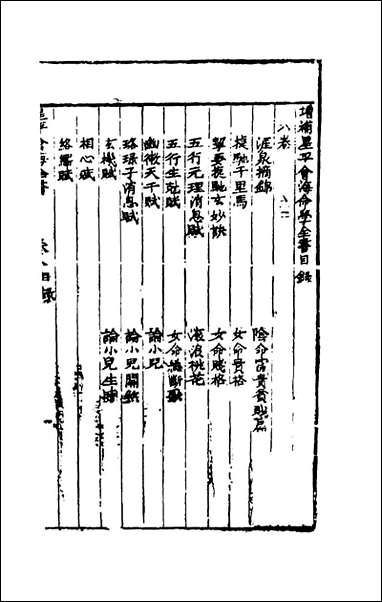 增補星平會海命學全書目錄
八卷
滛泉摘錦 陰命富貴貧賤篇
捉馳千里馬 女命貴格
挈要捉馳玄妙訣 女命賤格
五行元理消息賦 滾浪桃花
五行生尅賦 女命總斷歌
幽微天干賦 論小兒
珞琭子消息賦 論小兒關煞
玄機賦 論小兒生時
相心賦
絡繹賦
卷八目錄